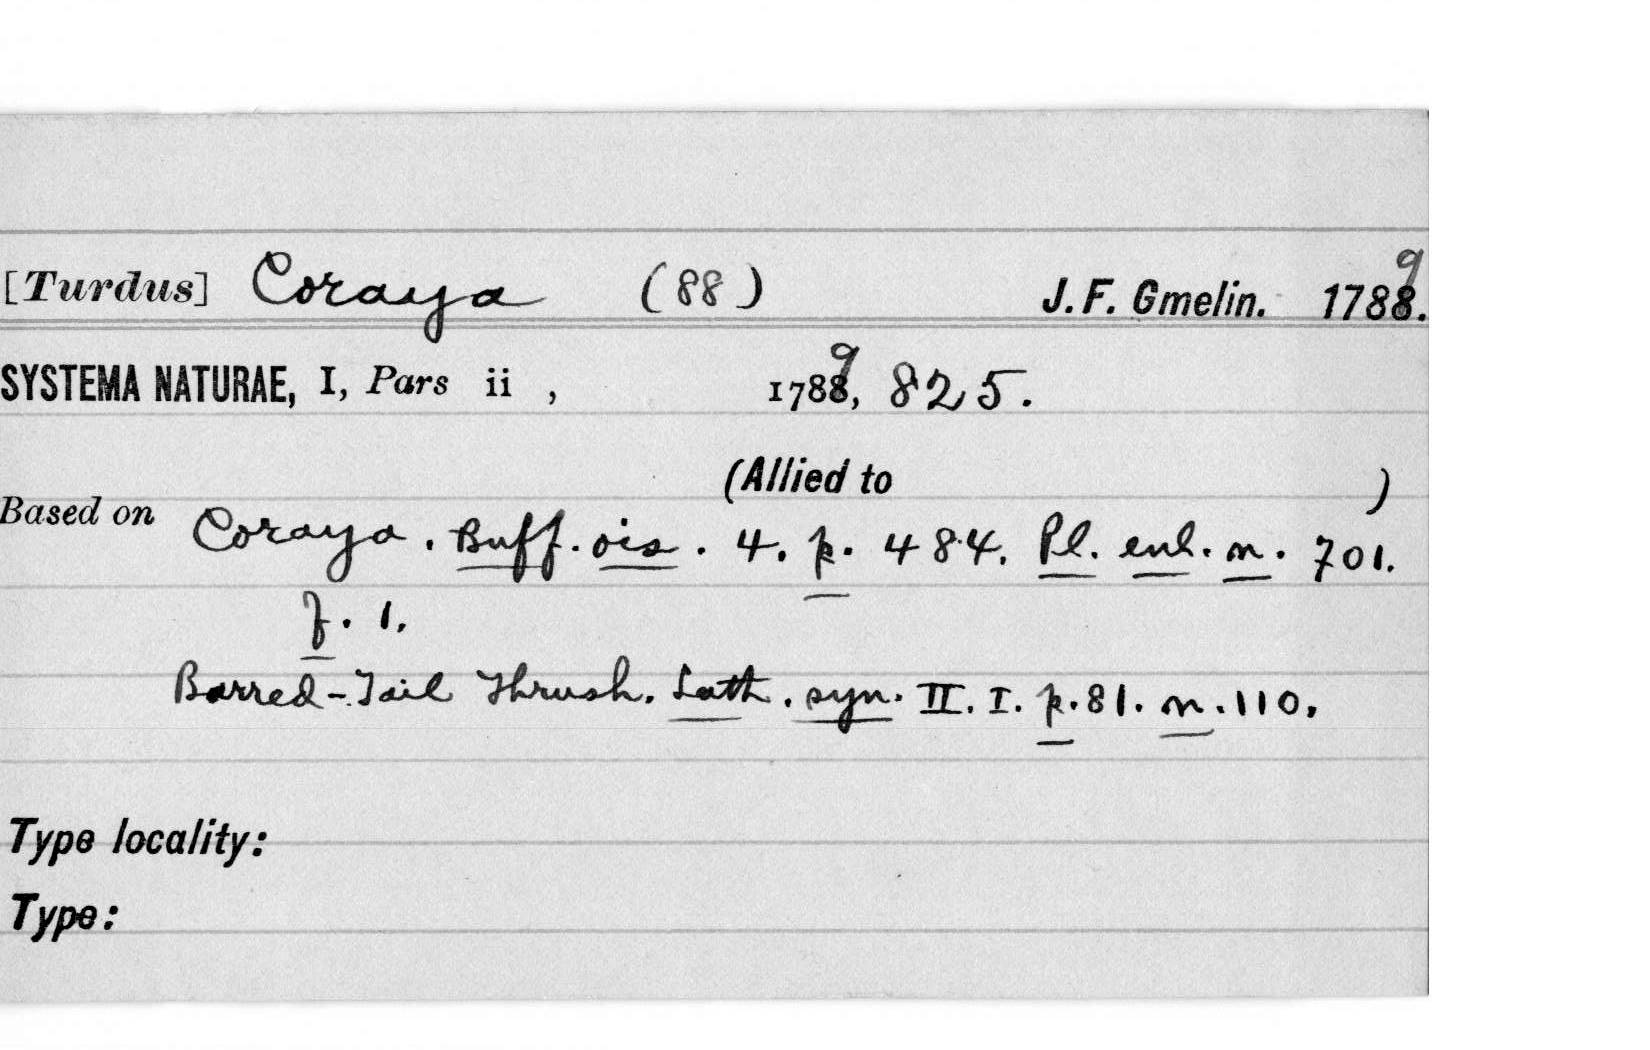 [Turdus] Coraya (88) J. F. Gmelin. 1789.
SYSTEMA NATURAE, I, Pars ii , 1789, 825.
(Allied to )
Based on Coraya. Buff. ois. 4. p. 484. Pl. enl. n. 701.
f. 1.
Barred-Tail Thrush. Lath. syn. II. I. p. 81. n. 110.
Type locality:
Type: